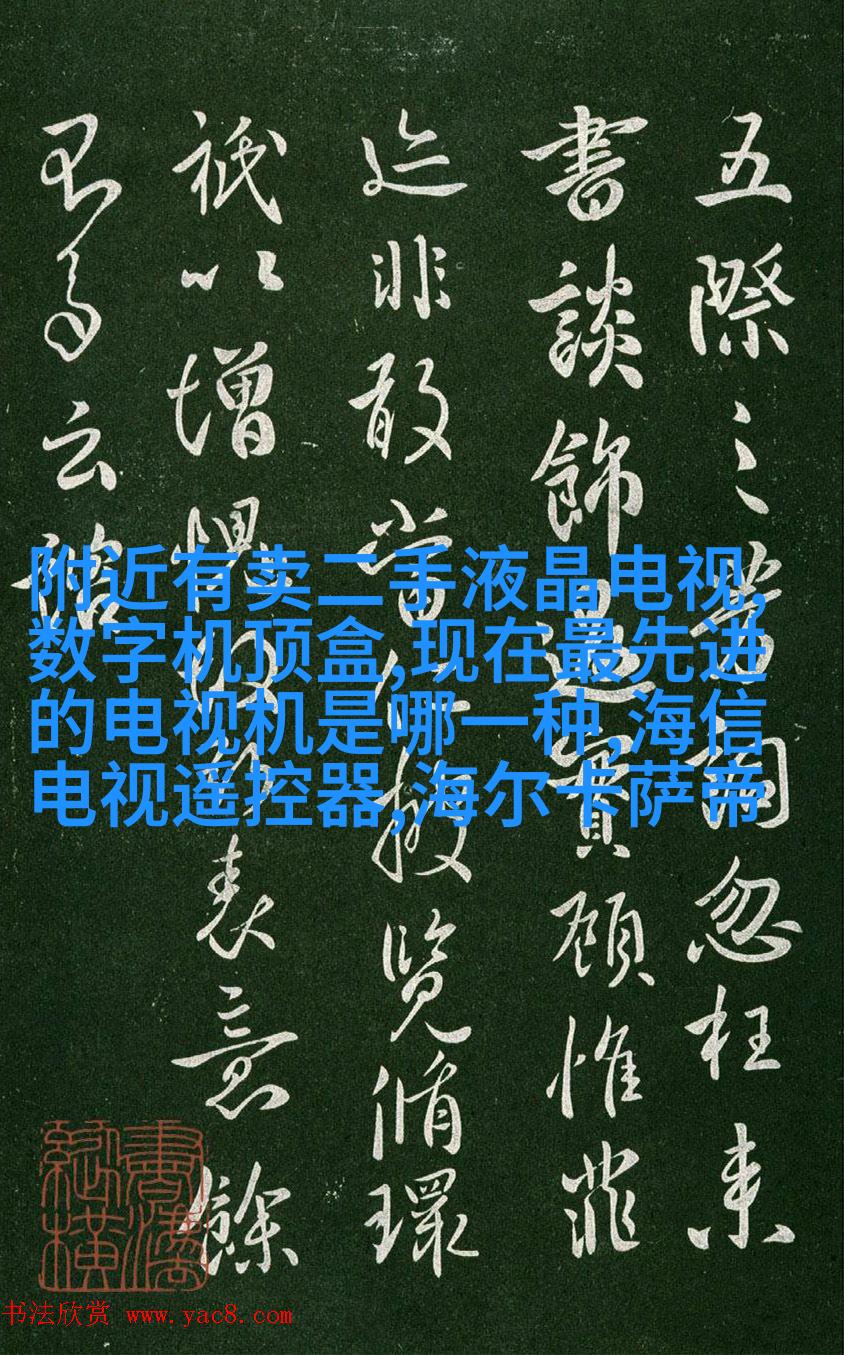 五際之忽枉来
書談飾過實顧惟菲
迹非敢當披覽循環
祇以增表意餘
云
附近有卖二手液晶电视,
数字机顶盒,现在最先进
的电视机是哪一种,海信
电视遥控器,海尔卡萨帝
書法
縱橫
书法欣赏 www.yac8.com